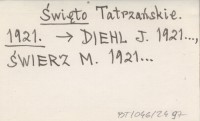 Święto Tatrzańskie.
1921. → DIEHL J. 1921...,
ŚWIERZ M. 1921...
PT/046/24 97